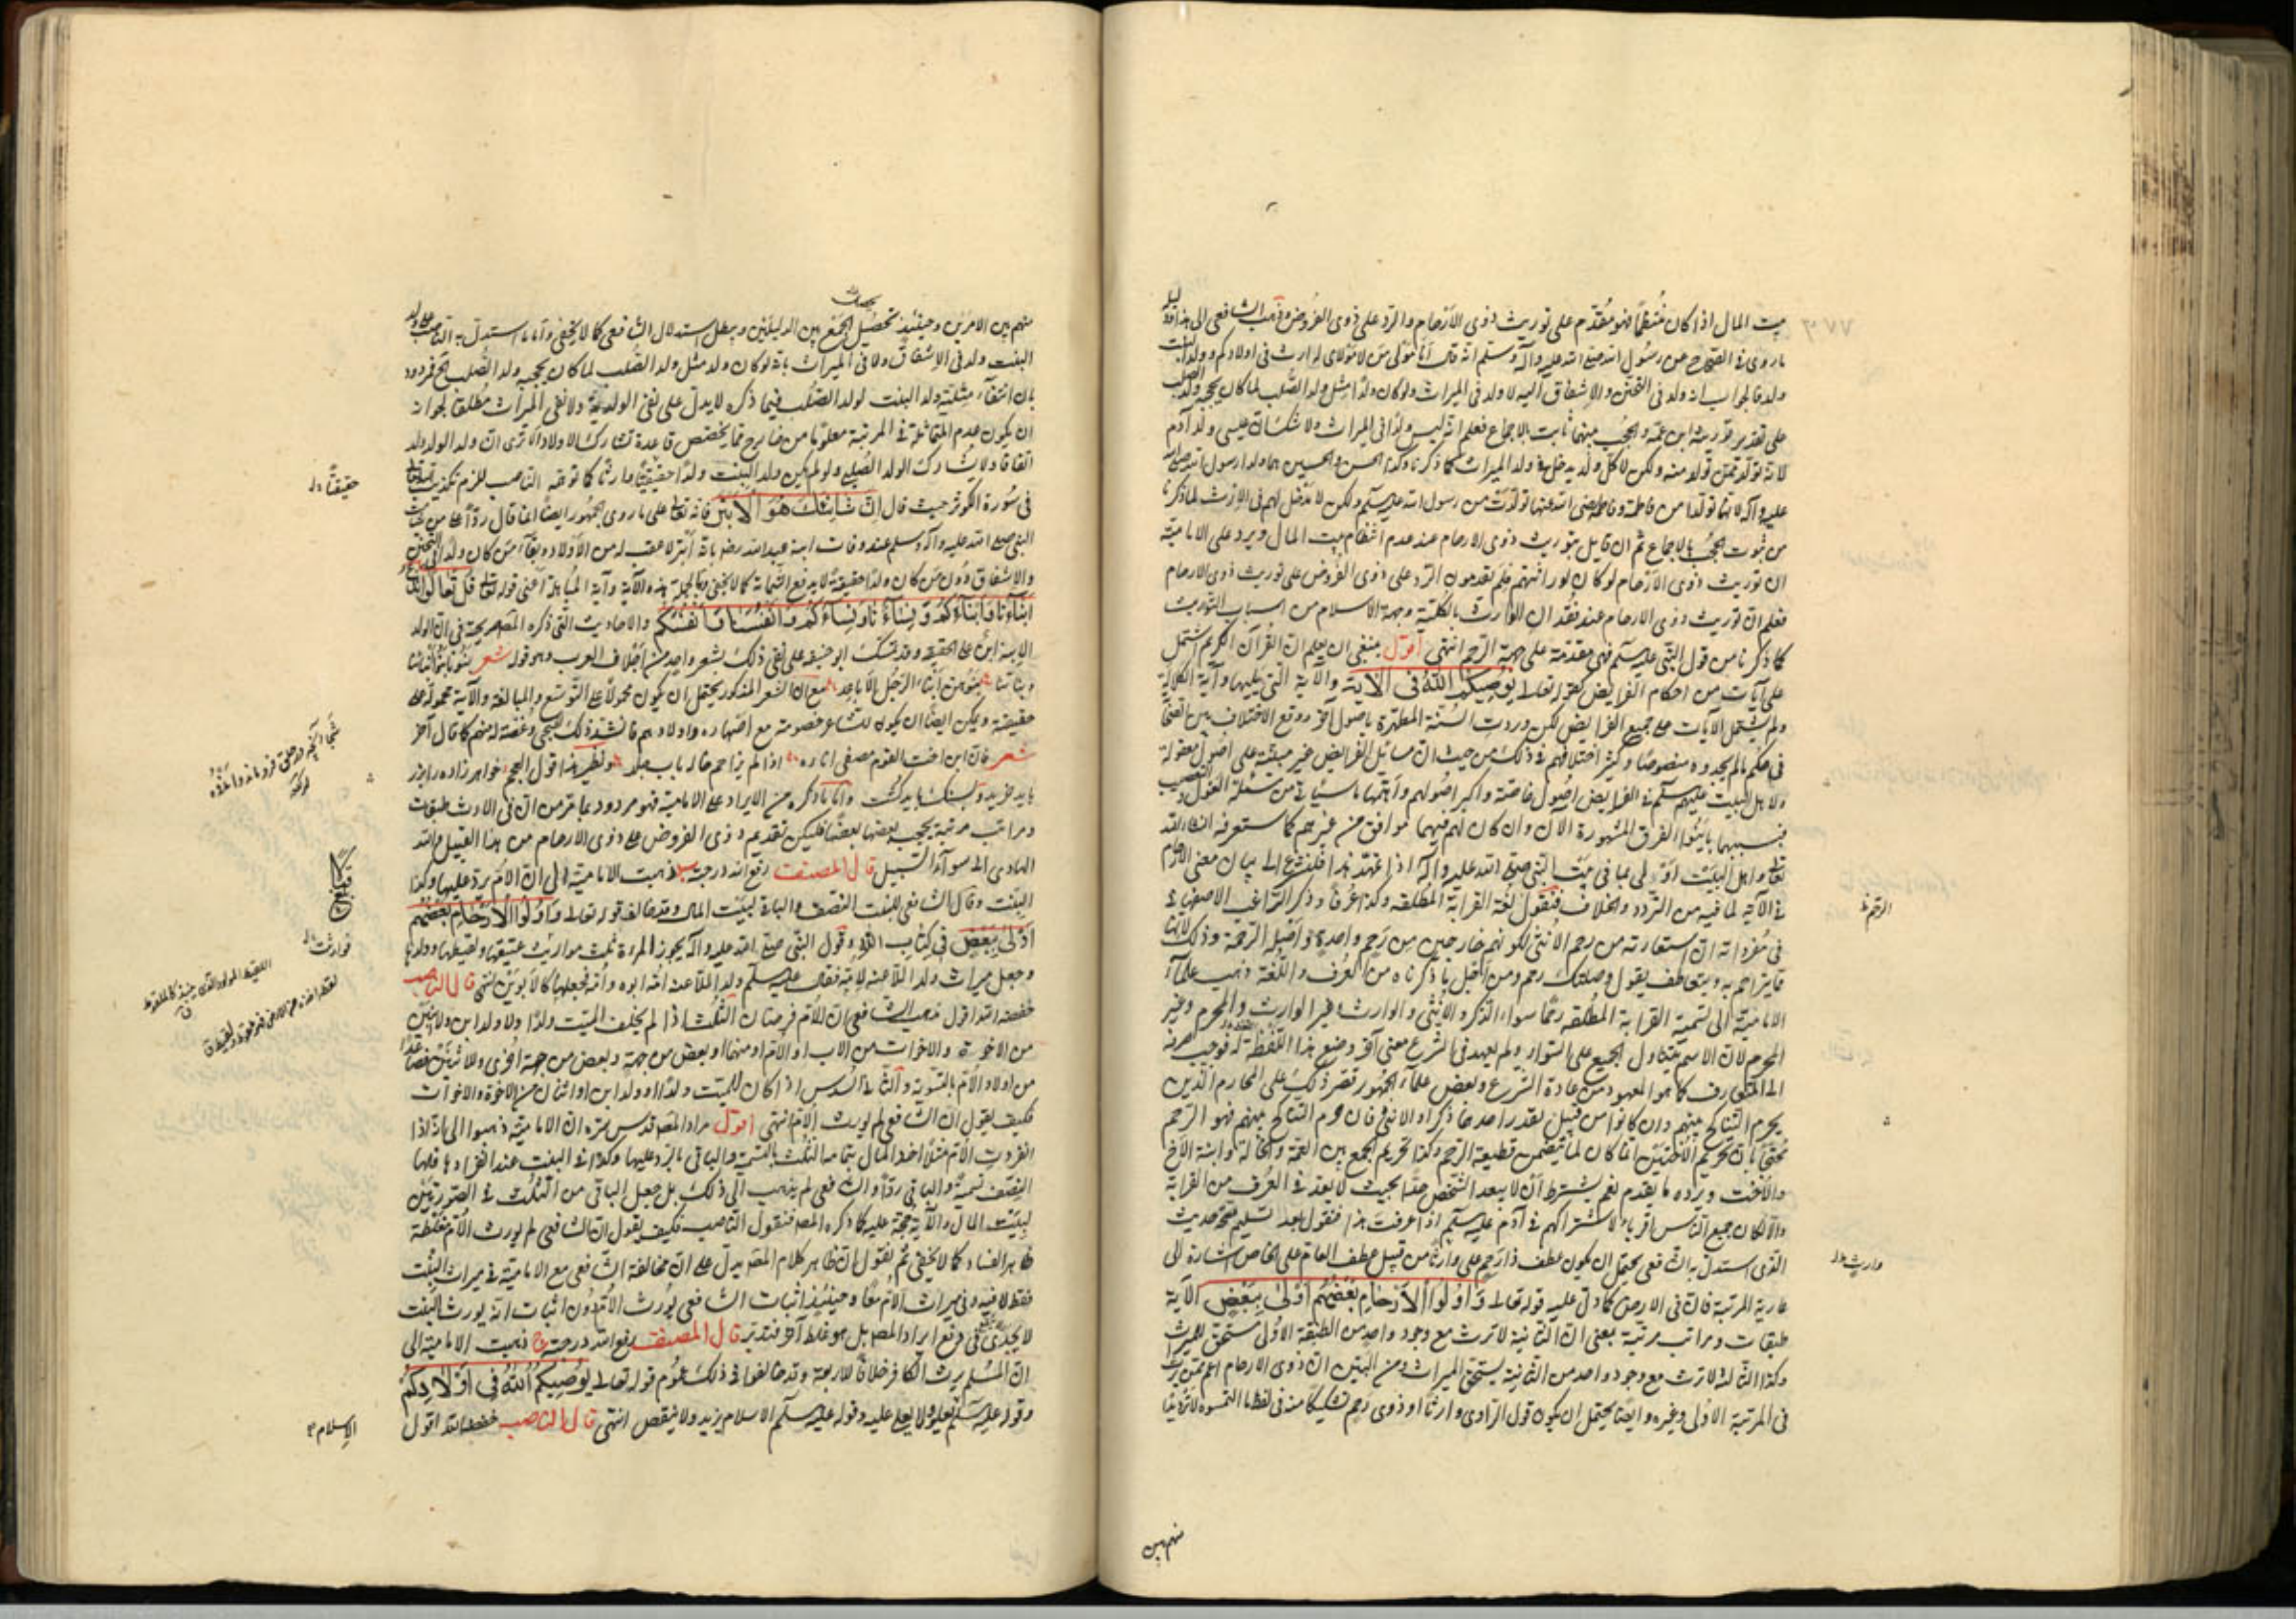 بيت المال اذا كان منتظما فهو مقدم على توريث ذوى الارحام والرد على ذوى الفروض وذهب الشافعى الى هذا
ما روى فى الصحيح عن رسول الله صلى الله عليه وآله وسلم انه قال انا مولى من لا مولى له ارث فى اولادكم وولد البنت
ولد فالجواب انه ولد فى التحنن والاشفاق اليه لا ولد فى الميراث ولو كان ولدا مثل ولد الصلب لما كان يحجبه ولد الصلب
على تقدير ابن عمه والحجب بينهما ثابت بالاجماع فعلم انه ليس ولدا فى الميراث ولا شك ان عيسى ولد آدم
لانه تولد ممن تولد منه ولكن لا كل ولد يدخل فى ولد الميراث كما ذكرنا وكذا الحسن والحسين هما ولدا رسول الله صلى الله
عليه وآله لانهما تولدا من فاطمة وفاطمة رضى الله عنها تولدت من رسول الله عليه السلم ولكن لا مدخل لهم فى الارث لما ذكرنا
من ثبوت الحجب بالاجماع ثم ان قايل بتوريث ذوى الارحام عند عدم انتظام بيت المال ويرد على الامامية
ان توريث ذوى الارحام لو كان لوراثتهم فلم يقدمون الرد على ذوى الفروض على توريث ذوى الارحام
فعلم ان توريث ذوى الارحام عند فقدان الوارث بالكلية وجهة الاسلام من اسباب التوريث
كما ذكرنا من قول النبى عليه السلم فهى مقدمة على جهة الرحم انتهى اقول ينبغى ان يعلم ان القرآن الكريم اشتمل
على آيات من احكام الفرايض كقوله تعالى يوصيكم الله فى الآية والآية التى يليها وآية الكلالة
ولم يشتمل الآيات على جميع الفرايض لكن وردت السنة المطهرة باصول اخر ووقع الاختلاف بين الفقهاء
فى حكم ما لم يجدوه منصوصا وكثر اختلافهم فى ذلك من حيث ان مسايل الفرايض غير مبنية على اصول معقولة
ولاهل البيت عليهم السلم فى الفرايض اصول خاصة واكبر اصولهم واهمها ما سيأتى من مسئلة العول والتعصيب
فبسببهما باينوا الفرق المشهورة الآن وان كان لهم فيهما موافق من غيرهم كما ستعرفه انشاء الله
تعالى واهل البيت اولى بما فى بيت النبى صلى الله عليه وآله اذا تمهد هذا فلنشرع الى بيان معنى الارحام
فى الآية لما فيه من التردد والخلاف فنقول لغة القرابة المطلقة وكذا عرفا وذكر الراغب الاصفهانى
فى مفرداته ان استعارته من رحم الانثى لكونهم خارجين من رحم واحدة واصل الرحمة وذلك لانها
مما يتراحم به ويتعاطف يقول وصلتك رحم ومن اجل ما ذكرناه من العرف واللغة ذهب علماء
الامامية الى تسمية القرابة المطلقة رحما سواء الذكر والانثى والوارث وغير الوارث والمحرم وغير
المحرم لان الاسم يتناول الجميع على السواء ولم يعهد فى الشرع معنى آخر وضع هذا اللفظ له فوجب صرفه
الى المتعارف كما هو المعهود من عادة الشرع وبعض علماء الجمهور قصر ذلك على المحارم الذين
يحرم التناكح بينهم وان كانوا من قبيل يقدر احدهما ذكرا والآخر انثى فان حرم التناكح بينهم فهو الرحم
محتجا بان تحريم الاختين انما كان لما يتضمن قطيعة الرحم وكذا تحريم الجمع بين العمة والخالة وابنة الاخ
والاخت ويرده ما تقدم نعم يشترط ان لا يبعد الشخص جدا بحيث لا يعد فى العرف من القرابة
والا لكان جميع الناس اقرباء لاشتراكهم فى آدم عليه السلم اذا عرفت هذا فنقول بعد تسليم صحة حديث
الذى استدل به الشافعى يحتمل ان يكون عطف ذا رحم على وارثا من قبيل عطف العام على الخاص اشارة الى
المرتبة فان فى الارث كما دل عليه قوله تعالى واولوا الارحام بعضهم اولى ببعض الآية
طبقات ومراتب مرتبة بمعنى ان الثانية لا ترث مع وجود واحد من الطبقة الاولى مستحق للميراث
وكذا الثالثة لا ترث مع وجود واحد من الثانية يستحق الميراث ومن البين ان ذوى الارحام اعم ممن يرث
فى المرتبة الاولى وغيره وايضا يحتمل ان يكون قول الراوى وارثا او ذوى رحم تشكيكا منه فى لفظ
منهم بين
الرحم
وارث
منهم بين الامرين وحينئذ تحصيل الجمع بين الدليلين وبطل استدلال الشافعى كما لا يخفى واما ما استدل به الناصب على ان ولد
البنت ولد فى الاشفاق ولا فى الميراث بانه لو كان ولد مثل ولد الصلب لما كان يحجبه ولد الصلب فمردود
بان انتفاء مثلية ولد البنت لولد الصلب فيما ذكره لا يدل على نفى الولدية ولا نفى الميراث مطلقا لجواز
ان يكون عدم المماثلة فى المرتبة معلوما من خارج مما يخصص قاعدة تشارك الاولاد الا ترى ان ولد الولد ولد
اتفاقا ولا يشارك الولد الصلبى ولو لم يكن ولد البنت ولدا حقيقيا وارثا كما توهمه الناصب للزم تكذيب الله تعالى
فى سورة الكوثر حيث قال ان شانئك هو الابتر فانه تعالى على ما روى الجمهور ايضا انما قال ردا على من
النبى صلى الله عليه وآله وسلم عند وفات ابنه عبد الله رضه بانه ابتر لا عقب له من الاولاد وبقاء من كان ولدا فى التحنن
والاشفاق دون من كان ولدا حقيقة لا يدفع الشماتة كما لا يخفى وبالجملة هذه الآية وآية المباهلة اعنى قوله تعالى قل تعالوا ندع
ابناءنا وابناءكم ونساءنا ونساءكم وانفسنا وانفسكم والاحاديث التى ذكره المصه صريحة فى ان الولد
الابنة ابن على الحقيقة وقد تمسك ابو حنيفة على نفى ذلك بشعر واحد من اجلاف العرب وهو قوله شعر بنونا بنو ابنائنا
وبناتنا بنوهن ابناء الرجال الاباعد مع ان الشعر المذكور يحتمل ان يكون محمولا على التوسع والمبالغة والآية محمولة على
حقيقته ويمكن ايضا ان يكون للشاعر خصومة مع اصهاره واولادهم فانشد ذلك لهجو وغضة لهم كما قال آخر
شعر فان ابن اخت القوم مصغى اناءه اذا لم يزاحم خاله باب جلد ونظير هذا قول العجم خواهر زاده را بزر
بايد خريد وبسنك بايد كشت واما ما ذكره من الايراد على الامامية فهو مردود بما مر من ان فى الارث طبقات
ومراتب مرتبة يحجب بعضها بعضا فليكن تقديم ذوى الفروض على ذوى الارحام من هذا القبيل والله
الهادى الى سواء السبيل قال المصنف رفع الله درجته ذهبت الامامية الى ان الام يرد عليها وكذا
البنت وقال الشافعى للبنت النصف والباقى لبيت المال وقد خالف قوله تعالى واولوا الارحام بعضهم
اولى ببعض فى كتاب الله وقول النبى صلى الله عليه وآله يحوز المراة ثلث مواريث عتيقها ولقيطها وولدها
وجعل ميراث ولد الملاعنة لامه فقال عليه السلم ولد الملاعنة امه ابوه وامه فجعلها كالابوين انتهى قال الناصب
خفضه الله اقول مذهب الشافعى ان للام فرضان الثلث اذا لم يخلف الميت ولدا ولا ولد ابن ولا اثنين
من الاخوة والاخوات من الاب او الام او منهما او بعض من جهة وبعض من جهة اخرى وللاثنين فصاعدا
من اولاد الام بالسوية والثانى السدس اذا كان للميت ولد او ولد ابن او اثنان من الاخوة والاخوات
فكيف يقول ان الشافعى لم يورث الام انتهى اقول مراد المصه قدس سره ان الامامية ذهبوا الى انه اذا
انفردت الام مثلا اخذ المال بتمامه الثلث بالتسمية والباقى بالرد عليها وكذا البنت عند انفرادها فلها
النصف تسمية والباقى ردا والشافعى لم يذهب الى ذلك بل جعل الباقى من الثلث فى الصورتين
لبيت المال والآية حجة عليه كما ذكره المصه فنقول الناصب فكيف يقول ان الشافعى لم يورث الام مغلطة
ظاهر الفساد كما لا يخفى ثم نقول ان ظاهر كلام المصه يدل على ان مخالفة الشافعى مع الامامية فى ميراث البنت
فقط لا فيه وفى ميراث الام معا وحينئذ اثبات الشافعى يورث الام دون اثبات انه يورث البنت
لا يجدى فى دفع ايراد المصه بل هو غلط آخر فتدبر قال المصنف رفع الله درجته ذهبت الامامية الى
ان المسلم يرث الكافر خلافا للاربعة وقد خالفوا فى ذلك عموم قوله تعالى يوصيكم الله فى اولادكم
وقوله عليه السلم يعلو ولا يعلى عليه وقوله عليه السلم الاسلام يزيد ولا ينقص انتهى قال الناصب خفضه الله اقول
حقيقتا
الاسلام